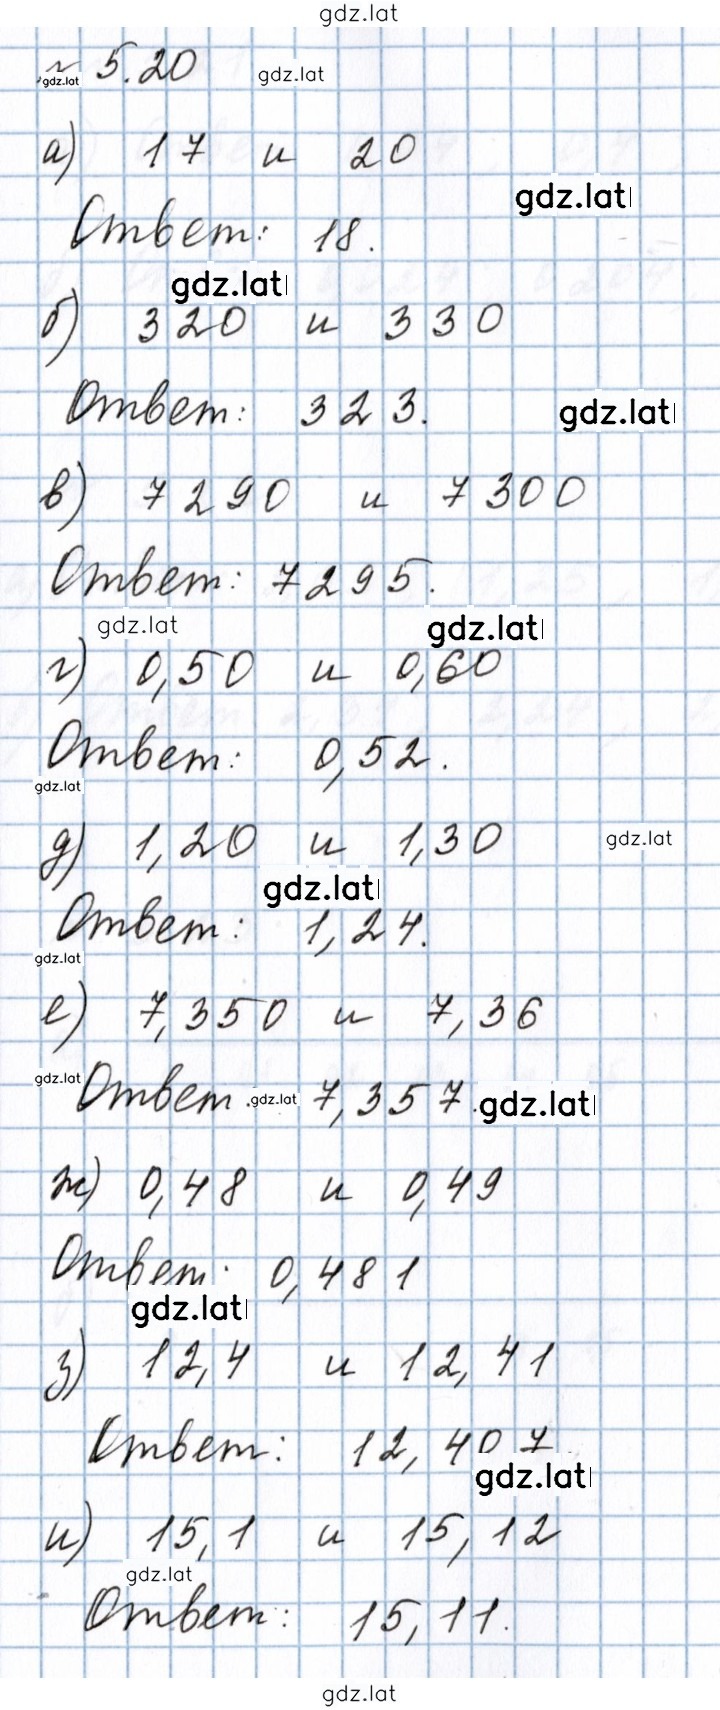 gdz.lat
№ 5.20 gdz.lat
gdz.lat
а) 17 и 20
gdz.lat
Ответ: 18.
gdz.lat
б) 320 и 330
Ответ: 323. gdz.lat
в) 7290 и 7300
Ответ: 7295.
gdz.lat gdz.lat
г) 0,50 и 0,60
Ответ: 0,52.
gdz.lat
д) 1,20 и 1,30 gdz.lat
gdz.lat
Ответ: 1,24.
gdz.lat
е) 7,350 и 7,36
gdz.lat
Ответ. gdz.lat 7,357. gdz.lat
ж) 0,48 и 0,49
Ответ: 0,481
gdz.lat
з) 12,4 и 12,41
Ответ: 12,407
gdz.lat
и) 15,1 и 15,12
gdz.lat
Ответ: 15,11.
gdz.lat